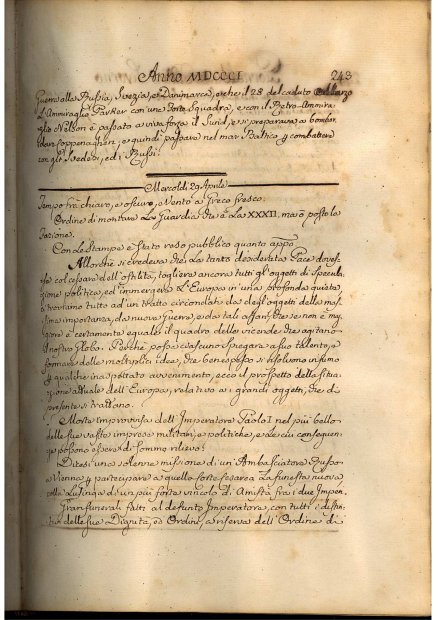 Anno MDCCCI. 243
Guerra alla Russia, Svezia, e Danimarca, e che il 28 del caduto Marzo
l'Ammiraglio Parker con una forte Squadra, e con il Retro-Ammira
glio Nelson è passato a viva forza il Sund, e si preparava a bombar
dare Coppenaghen, e quindi passare nel mar Baltico p combattere
con gli Svedesi, ed i Russi.
Mercoldì 29 Aprile
Tempo trà chiaro, e oscuro, e vento a Greco fresco.
Ordine di montare La Guardia che è La XXXII, ma à posto la
Con Le Stampe è stato reso pubblico quanto app.o
Allorchè si credeva che La tanto desiderata Pace doves
se col cessare dell'ostilità, togliere ancora tutti gl'oggetti di specula
zione politica, ed immergere L'Europa in una profonda quiete,
ci troviamo tutto ad un tratto circondati da degl'oggetti della mas
sima importanza, da nuove Guerre, e da tali affari, che se non è mag
giore è certamente eguale il quadro delle vicende che agitano
il nostro Globo. Perchè possa ciascuno spiegare a suo talento, e
formare delle moltiplici idee, che bene spesso si risolvono in fumo
p qualche inaspettato avvenimento, ecco il prospetto della situa
zione attuale dell'Europa, relativo ai grandi oggetti, che di
presente si trattano.
Morte improvvisa dell'Imperatore Paolo I nel più bello
delle sue vaste imprese militari, e politiche, e le cui conseguen
ze possono essere di sommo rilievo.
Dicesi una solenne missione di un Ambasciatore Russo
a Vienna p partecipare a quella Corte Cesarea La funesta nuova
colla Lusinga di un più forte vincolo di Amistà fra i due Imperi.
Gran funerali fatti al defunto Imperatore, con tutti i distin
tivi delle sue Dignità, ed Ordini, a riserva dell'Ordine di